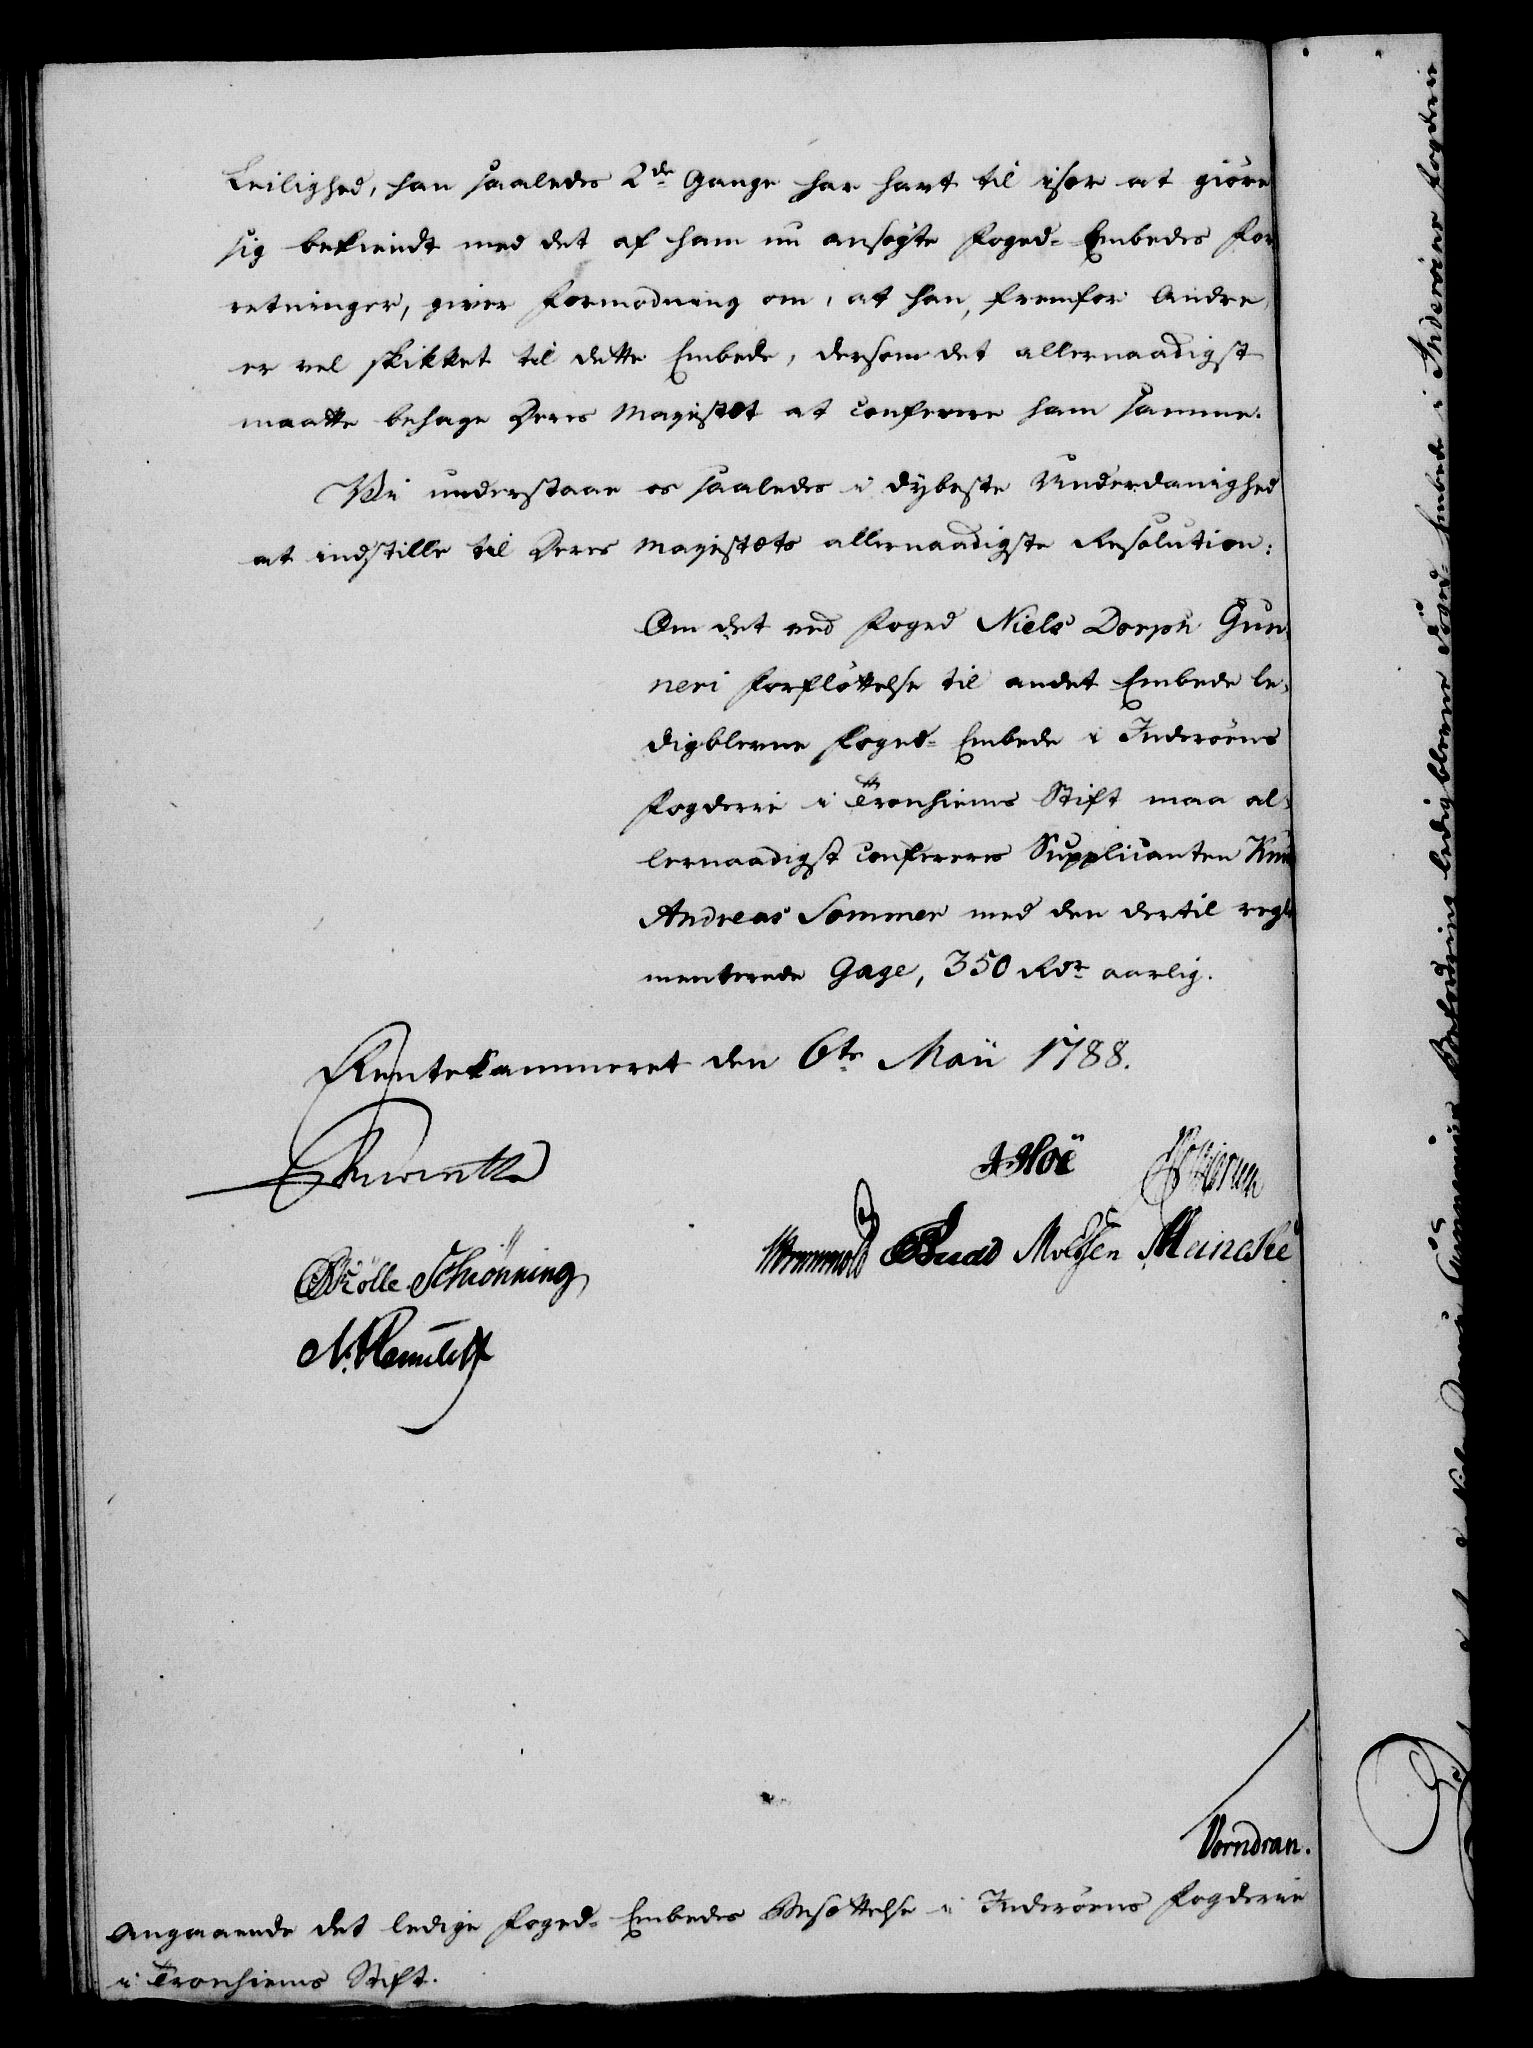 Leilighed, han saaledes 2de Gange har havt til især at giøre
sig bekiendt med det af ham nu ansøgte Foged- Embedes For
retninger, giver Formodning om, at han, fremfor Andre,
er vel skikket til dette Embede, dersom det allernaadigst
maatte behage Deres Majestæt at conferere ham samme.
Vi understaae os saaledes i dybeste Underdanighed
at indstille til Deres Majestæts allernaadigste Resolution:
Om det ved Foged Niels Dorph Gun-
neri Forfløttelse til andet Embede le-
digblevne Foged- Embede i Inderøens
Fogderie i Tronhiems Stift maa al-
lernaadigst confereres Supplicanten Knud
Andreas Sommer med den dertil regle
menterede Gage, 350 Rdr aarlig.
Rentekammeret den 6te Maii 1788.
Wormskiold Budd Moltzen Meincke
Schiönning
Vorndran.
Angaaende det ledige Foged- Embedes Besættelse i Inderøens Fogderie
i Tronhiems Stift.
Befordring ledigblevne Foged- Embede i Inderøens Fogderie